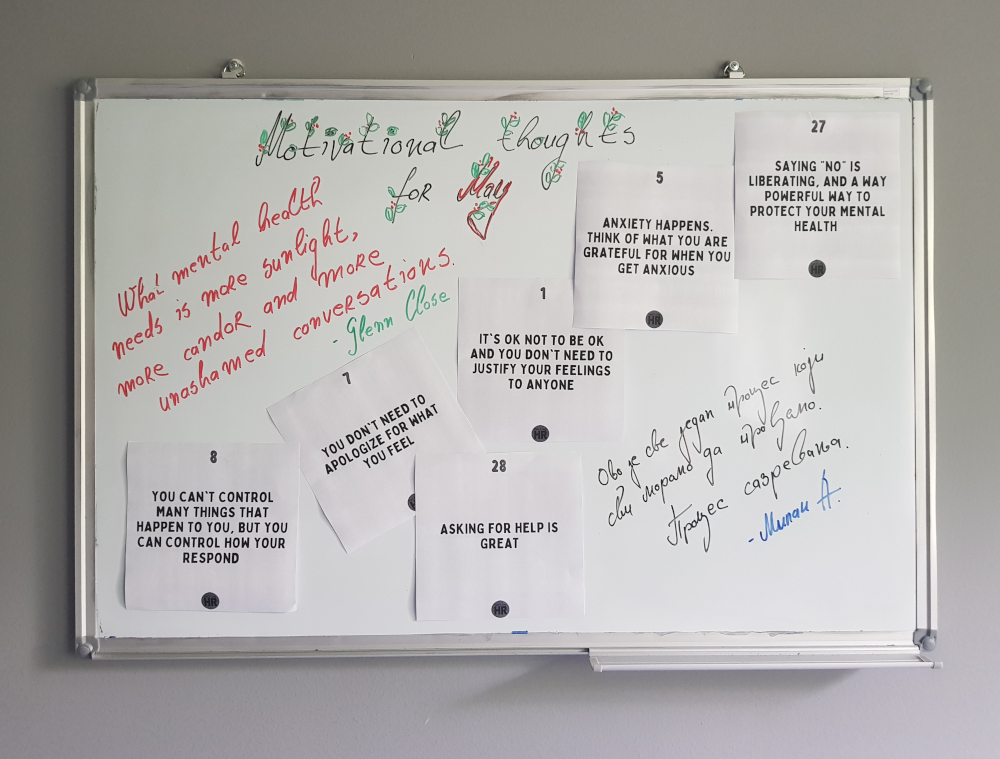 Motivational thoughts
for May
What mental health
needs is more sunlight,
more candor and more
unashamed conversations.
- Glenn Close
27
SAYING "NO" IS
LIBERATING, AND A WAY
POWERFUL WAY TO
PROTECT YOUR MENTAL
HEALTH
HR
5
ANXIETY HAPPENS.
THINK OF WHAT YOU ARE
GRATEFUL FOR WHEN YOU
GET ANXIOUS
HR
1
IT`S OK NOT TO BE OK
AND YOU DON`T NEED TO
JUSTIFY YOUR FEELINGS
TO ANYONE
HR
7
YOU DON`T NEED TO
APOLOGIZE FOR WHAT
YOU FEEL
8
YOU CAN`T CONTROL
MANY THINGS THAT
HAPPEN TO YOU, BUT YOU
CAN CONTROL HOW YOUR
RESPOND
HR
28
ASKING FOR HELP IS
GREAT
HR
Ово је све један процес који
сви морамо да прођемо.
Процес сазревања.
- Милан А.